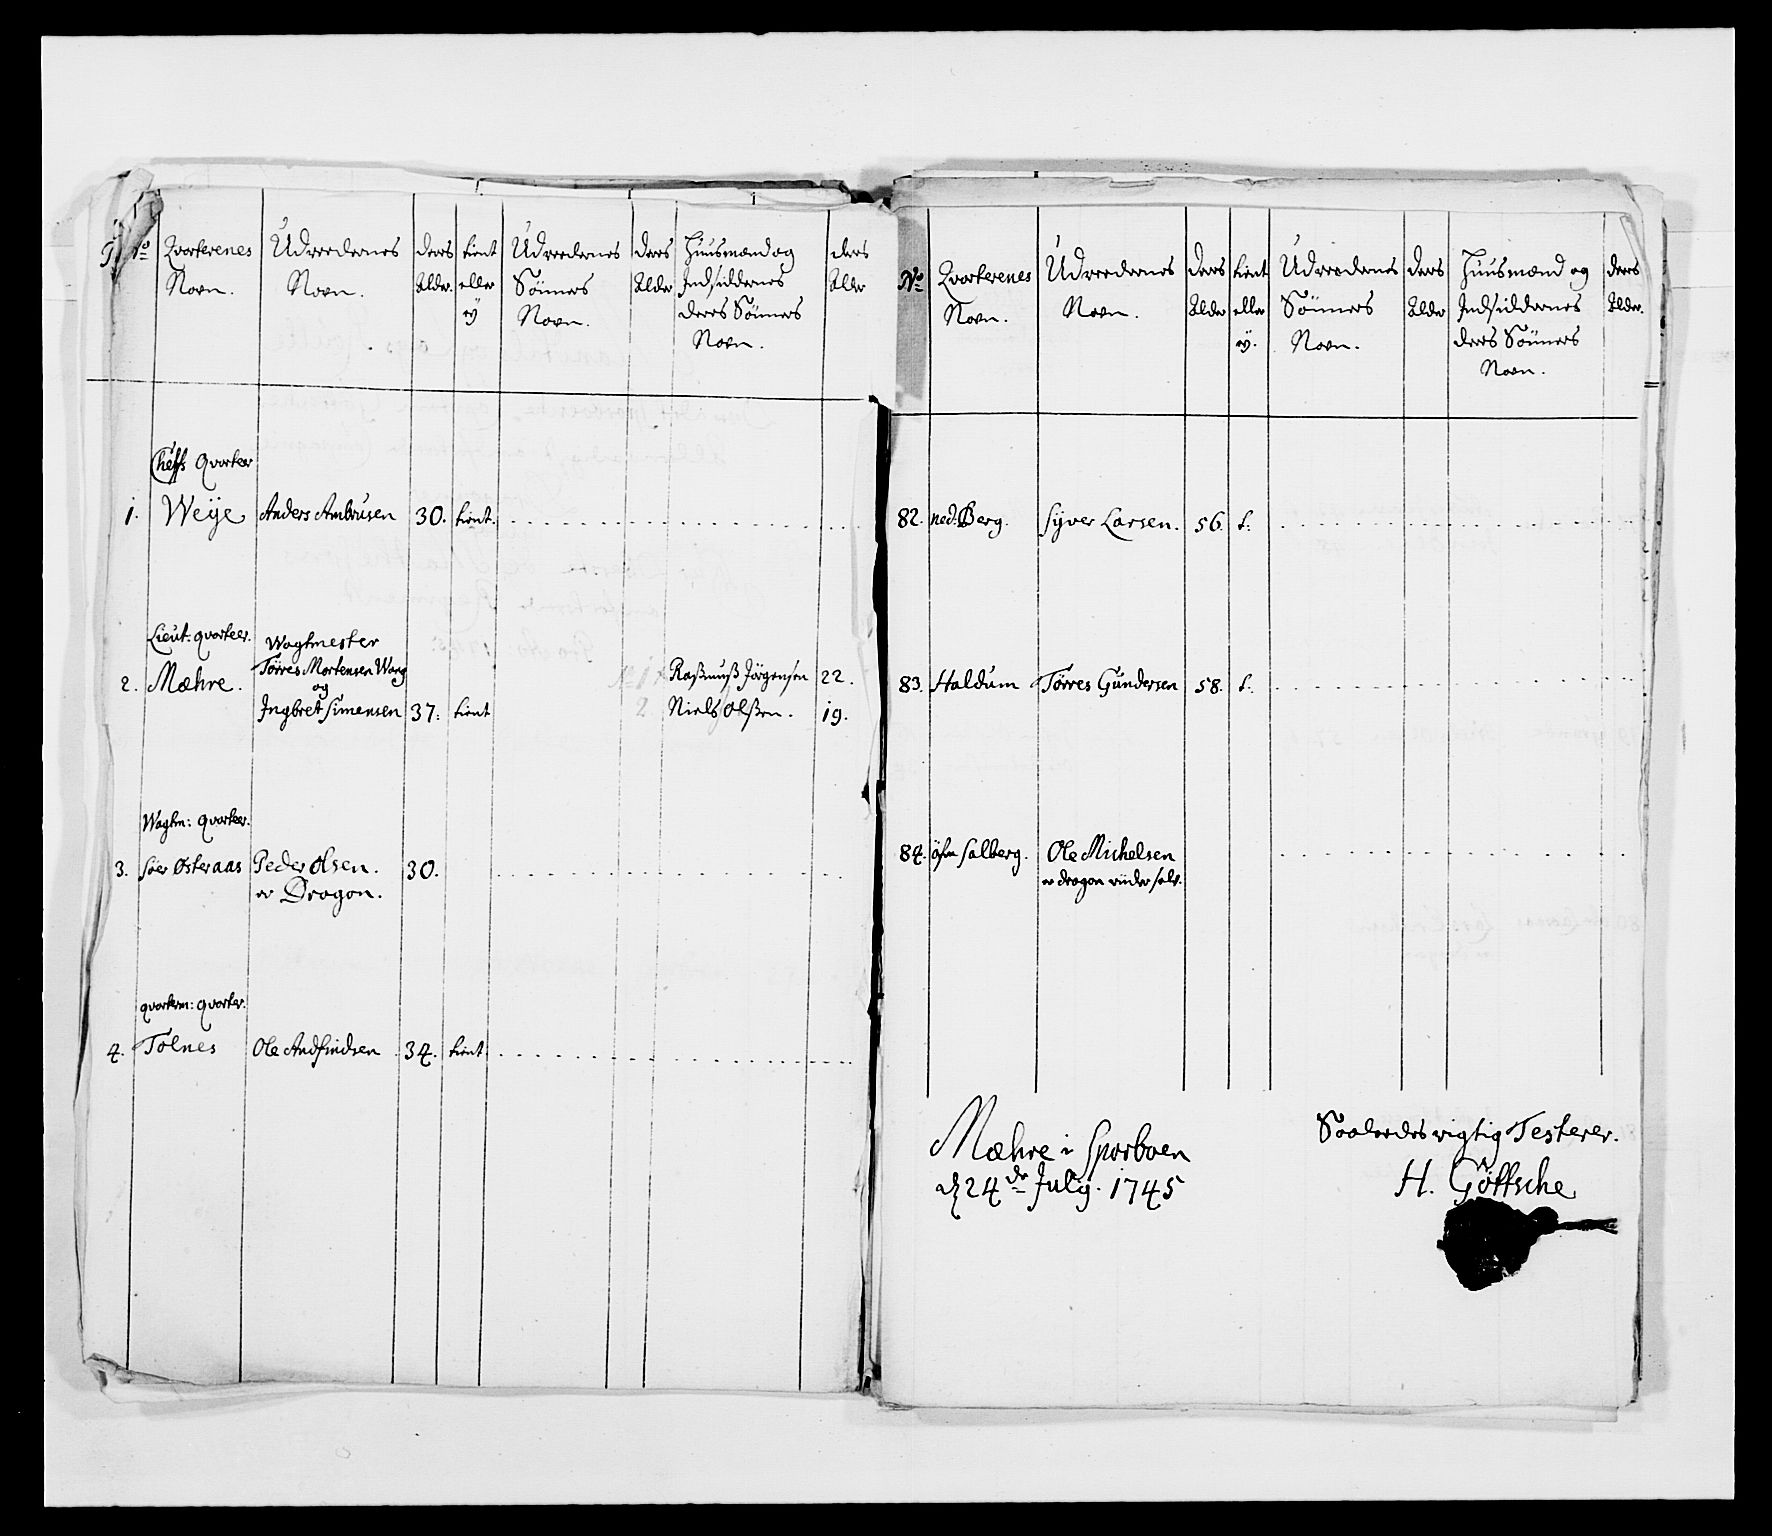 No Qvarterenes Navn. Udreedernes Navn. deres Alder. tient eller ej Udreedernes Sönners Navn. deres Alder Huusmænd og Indsiddernes deres Sönners Navn. deres Alder
Cheffs Qvarteer
1. Weÿe Anders Ambrusen 30. tient.
Lieut: qvarteer.
2. Mæhre. Wagtmester
Törres Mortensen Wang
og
Ingbret Simensen 37. tient
1 Rasmuß Jörgensen 22.
2 Niels Olßen. 19.
Wagtm: qvarteer.
3. Söer Østeraas Peder Olsen. 30.
er Dragon.
qvarterm: qvarter.
4. Tølnes Ole Andfindsen 34. tient
No Qvarterenes Navn. Udreedernes Navn. deres Alder tient eller ej. Udreedernes Sönners Navn. deres Alder Huusmænd og Indsiddernes deres Sönners Navn. deres Alder.
82. ned: Berg. Syver Larsen. 56. t.
83. Haldum Törres Gundersen 58. t.
84. öfre Salberg. Ole Michelsen
er dragon under selv.
Mæhre i Sparboen
d 24de July. 1745
Saaledes rigtig Testerer.
H. Göttsche